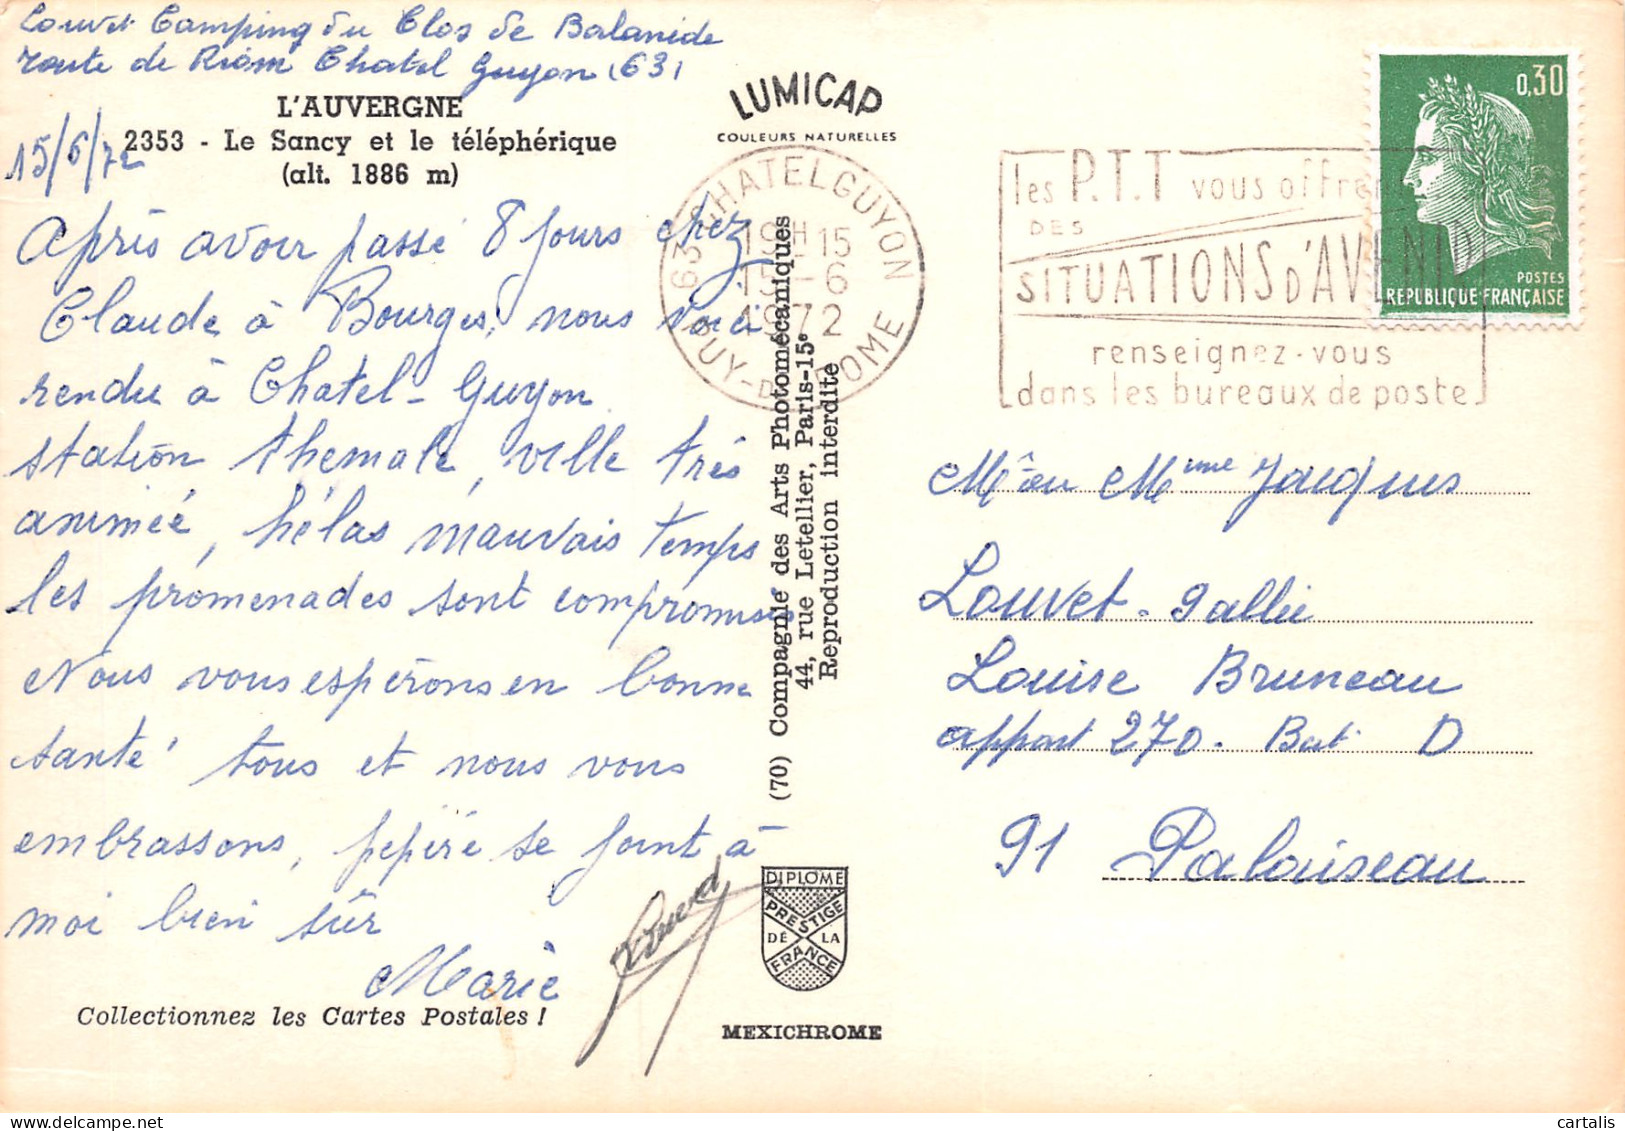 Louvet Camping du Clos de Balanide
route de Riom Chatel Guyon (63)
L'AUVERGNE
2353 - Le Sancy et le téléphérique
(alt. 1886 m)
15/6/72
Après avoir passé 8 jours chez
Claude à Bourges, nous voici
rendu à Chatel-Guyon
station themale, ville très
animée, hélas mauvais temps
les promenades sont compromises
Nous vous espérons en bonne
santé tous et nous vous
embrassons, pépère se joint à
moi bien sûr
Marie
Collectionnez les Cartes Postales !
LUMICAP
COULEURS NATURELLES
63 CHATELGUYON
19H15
15-6
1972
PUY-DE-DOME
(70) Compagnie des Arts Photomécaniques
44, rue Letellier, Paris-15e
Reproduction interdite
DIPLOME
PRESTIGE
DE LA
FRANCE
MEXICHROME
les P.T.T vous offrent
DES
SITUATIONS D'AVENIR
renseignez-vous
dans les bureaux de poste
0,30
POSTES
REPUBLIQUE FRANÇAISE
Mr ou Mme Jacques
Louvet - Pallié
Louise Bruneau
appart 270. Bat. D
91 Palaiseau
cartalis